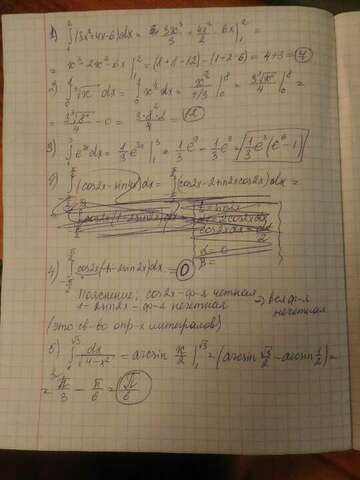 1) ∫₁² (3x²+4x-6)dx = 3x³/3 + 4x²/2 - 6x |₁² =
= x³+2x²-6x |₁² = (8+8-12)-(1+2-6) = 4+3 = 7
2) ∫₀⁸ ∛x dx = ∫₀⁸ x^(1/3) dx = x^(4/3)/(4/3) |₀⁸ = 3∛x⁴/4 |₀⁸ =
= 3∛8⁴/4 - 0 = 3·8·2/4 = 12
3) ∫ e^(3x) dx = 1/3 e^(3x) |₁³ = 1/3 e⁹ - 1/3 e³ = 1/3 e³(e⁶-1)
4) ∫ (cos2x - sin4x)dx = ∫ (cos2x - 2sin2xcos2x)dx =
4) ∫ cos2x(1-2sin2x)dx = 0
Пояснение: cos2x - ф-я четная
1-2sin2x - ф-я нечетная => вся ф-я нечетная
(это св-во опр-х интегралов)
5) ∫₁^√3 dx/√(4-x²) = arcsin x/2 |₁^√3 = (arcsin √3/2 - arcsin 1/2) =
= π/3 - π/6 = π/6